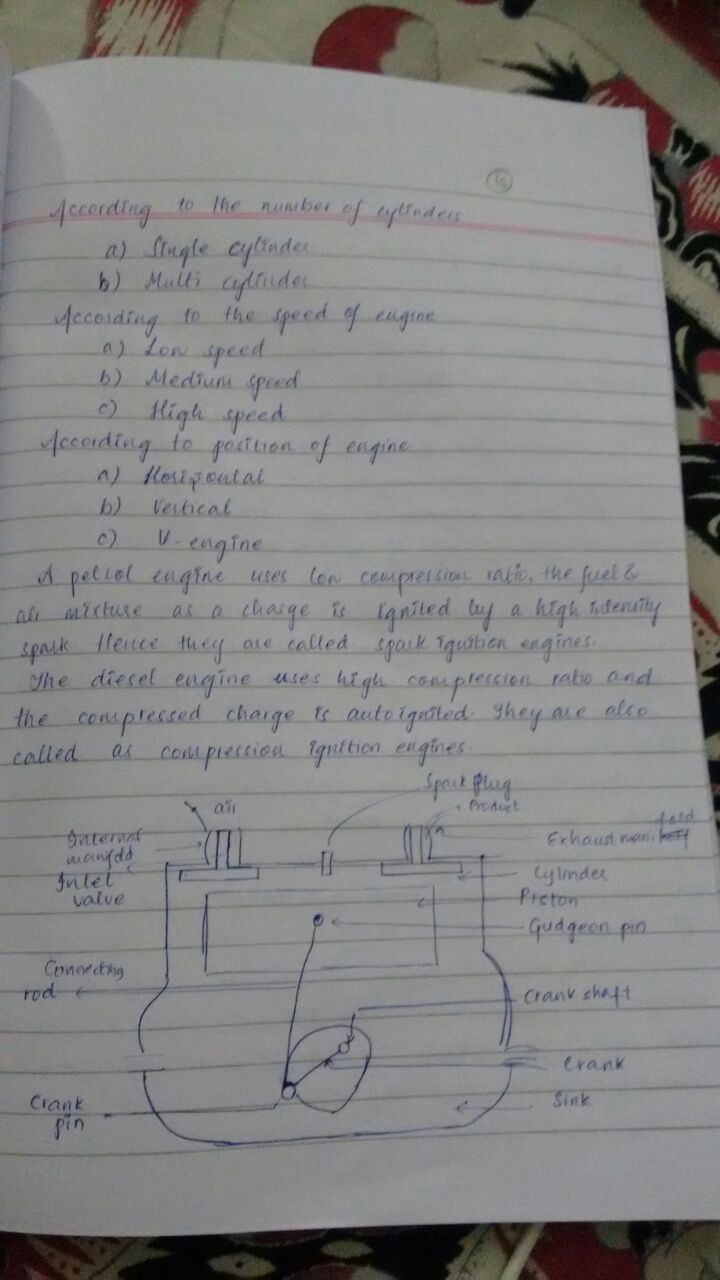 15
According to the number of cylinders
a) Single cylinder
b) Multi cylinder
According to the speed of engine
a) Low speed
b) Medium speed
c) High speed
According to position of engine
a) Horizontal
b) Vertical
c) V-engine
A petrol engine uses low compression ratio, the fuel &
air mixture as a charge is ignited by a high intensity
spark. Hence they are called spark ignition engines.
The diesel engine uses high compression ratio and
the compressed charge is autoignited. They are also
called as compression ignition engines.
Spark plug
air
Product
Internal
manifold
Exhaust manifold
Inlet
valve
Cylinder
Piston
Gudgeon pin
Connecting
rod
Crank shaft
Crank
Crank
pin
Sink